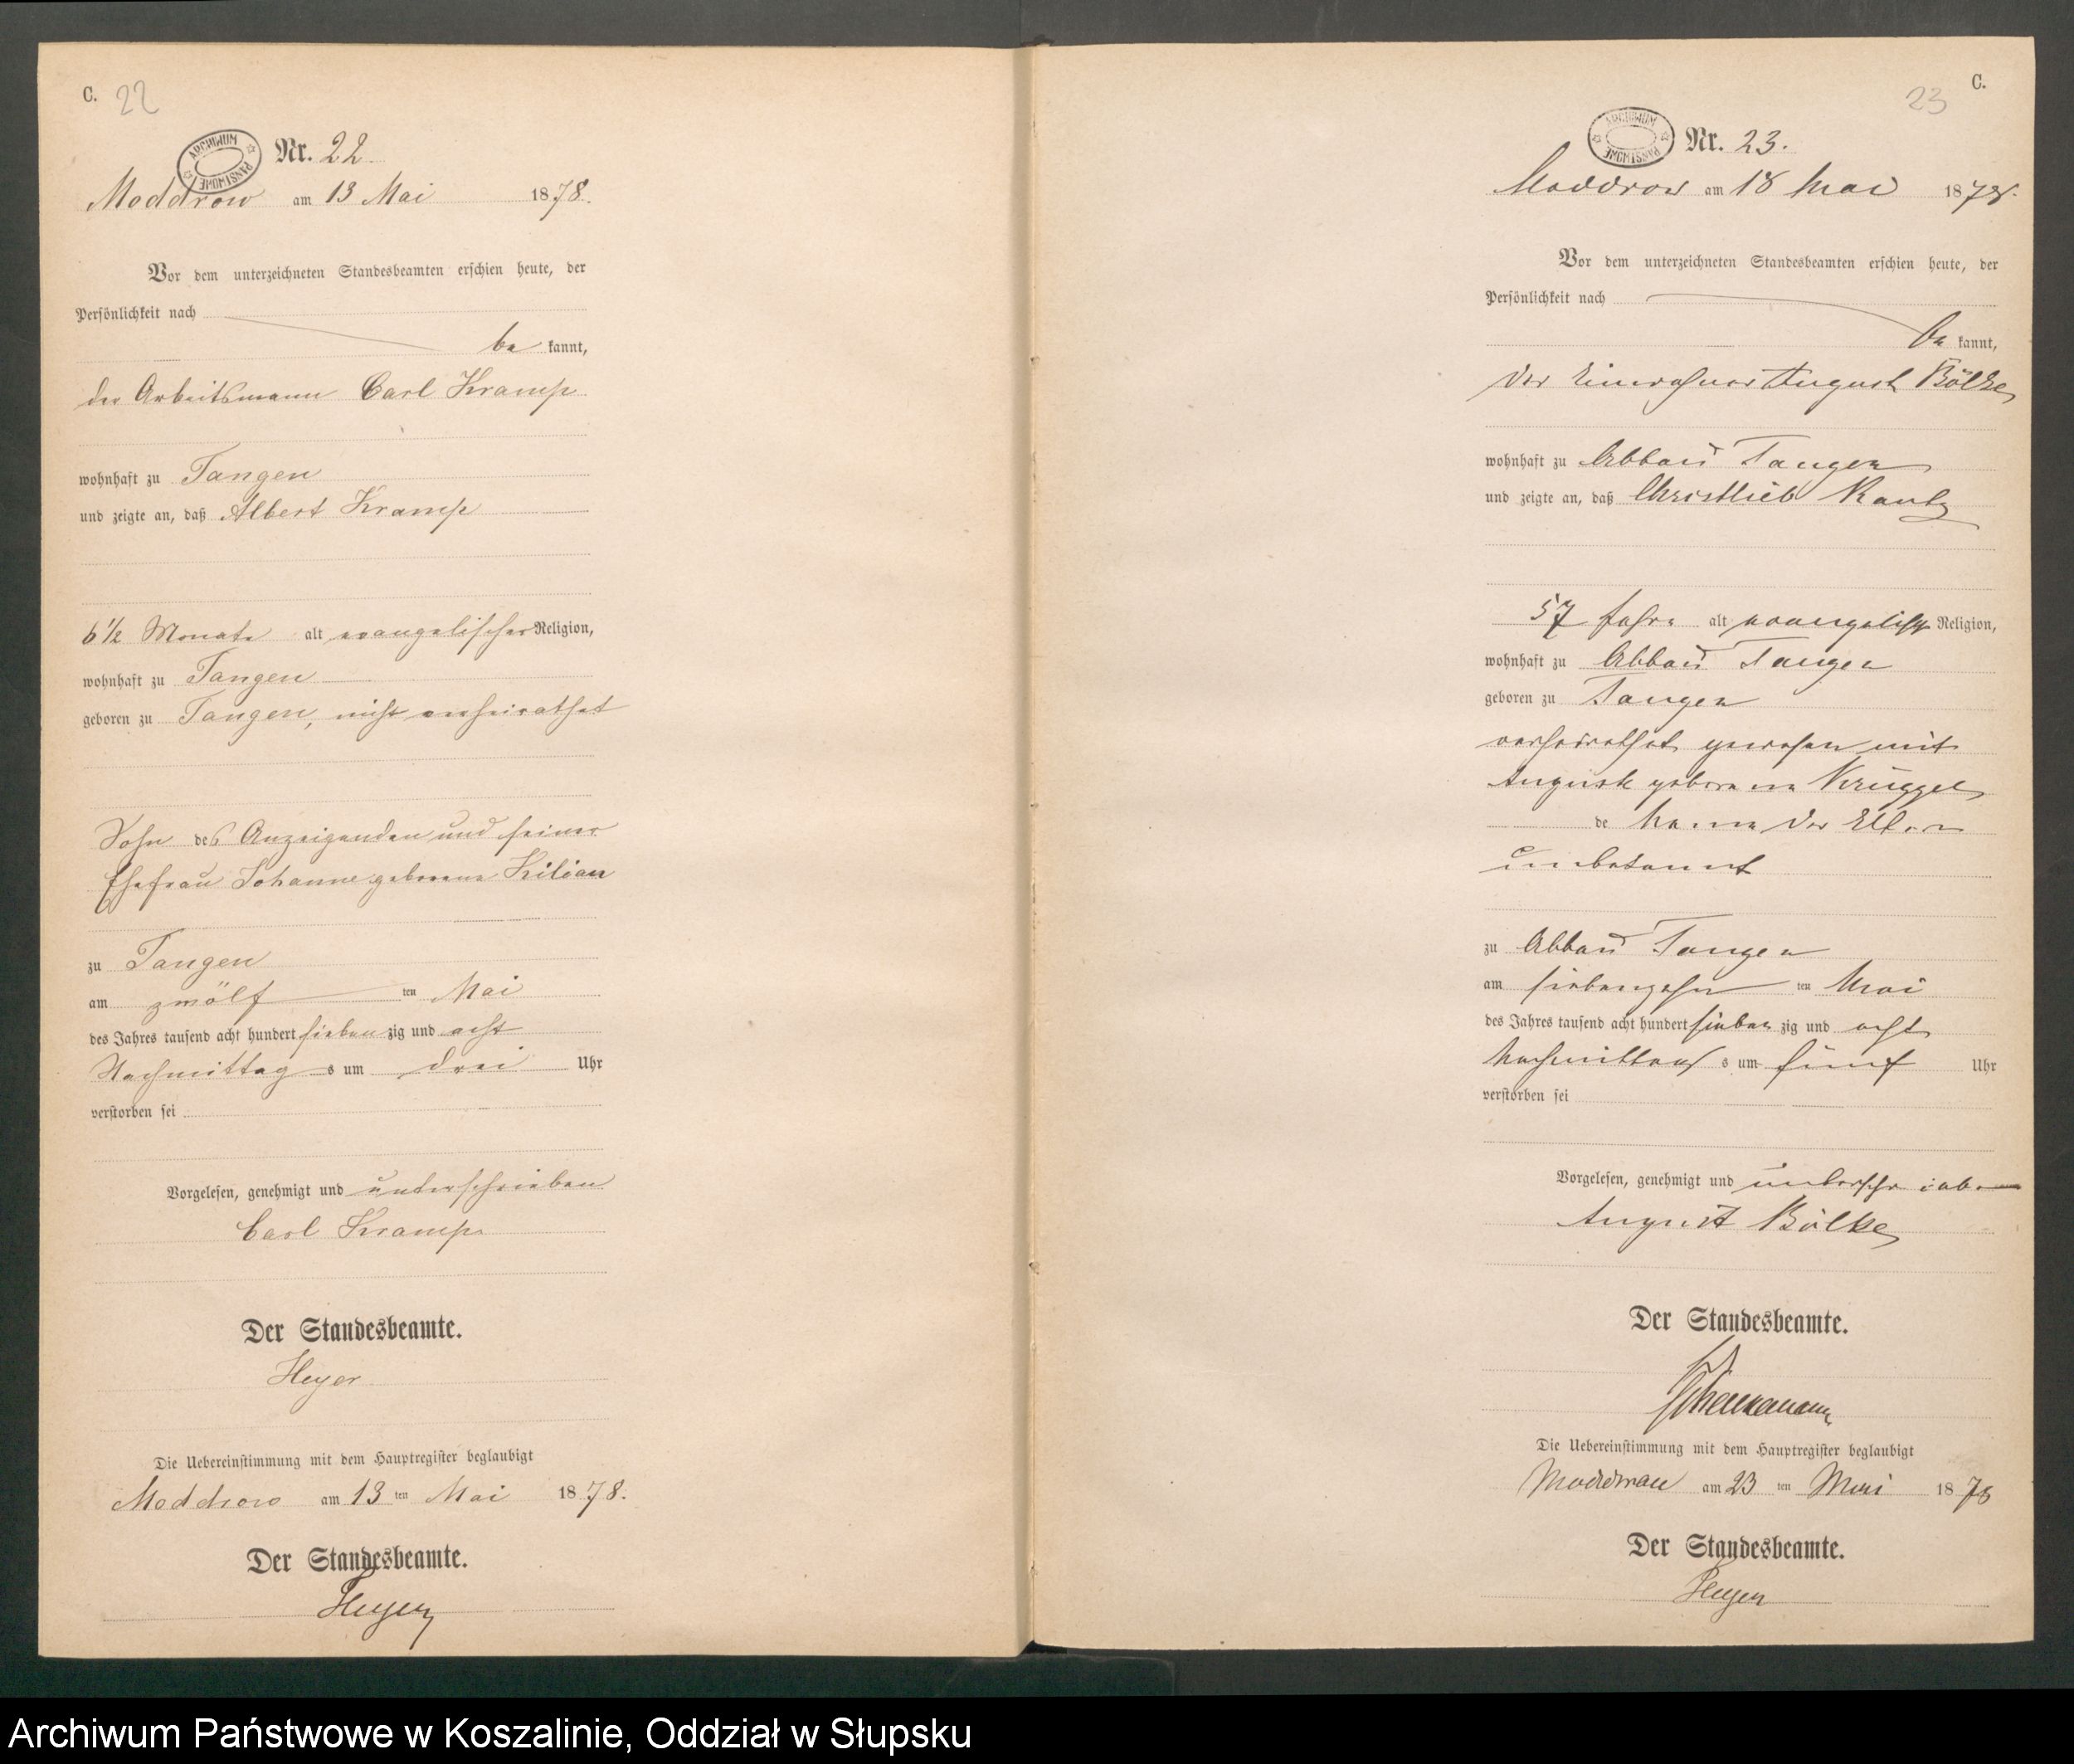 C. 22
ARCHIWUM PAŃSTWOWE
Nr. 22.
Moddrow am 13 Mai 1878.
Vor dem unterzeichneten Standesbeamten erschien heute, der
Persönlichkeit nach
be kannt,
der Arbeitsmann Carl Kramp
wohnhaft zu Tangen
und zeigte an, daß Albert Kramp
6 1/2 Monate alt evangelischer Religion,
wohnhaft zu Tangen
geboren zu Tangen, nicht verheirathet
Sohn des Anzeigenden und seiner
Ehefrau Johanne geborene Kilian
zu Tangen
am zwölf ten Mai
des Jahres tausend acht hundert sieben zig und acht
Nachmittag s um drei Uhr
verstorben sei
Vorgelesen, genehmigt und unterschrieben
Carl Kramp
Der Standesbeamte.
Heyer
Die Uebereinstimmung mit dem Hauptregister beglaubigt
Moddrow am 13 ten Mai 1878.
Der Standesbeamte.
Heyer
23 C.
ARCHIWUM PAŃSTWOWE
Nr. 23.
Moddrow am 18 Mai 1878.
Vor dem unterzeichneten Standesbeamten erschien heute, der
Persönlichkeit nach
be kannt,
der Einwohner August Bölke
wohnhaft zu Abbau Tangen
und zeigte an, daß Christlieb Kautz
57 Jahre alt evangelisch Religion,
wohnhaft zu Abbau Tangen
geboren zu Tangen
verheirathet gewesen mit
August geborene Krüggel
de Name der Eltern
unbekannt
zu Abbau Tangen
am siebenzehn ten Mai
des Jahres tausend acht hundert sieben zig und acht
Nachmittags s um fünf Uhr
verstorben sei
Vorgelesen, genehmigt und unterschrieben
August Bölke
Der Standesbeamte.
Die Uebereinstimmung mit dem Hauptregister beglaubigt
Moddrow am 23 ten Mai 1878
Der Standesbeamte.
Heyer
Archiwum Państwowe w Koszalinie, Oddział w Słupsku